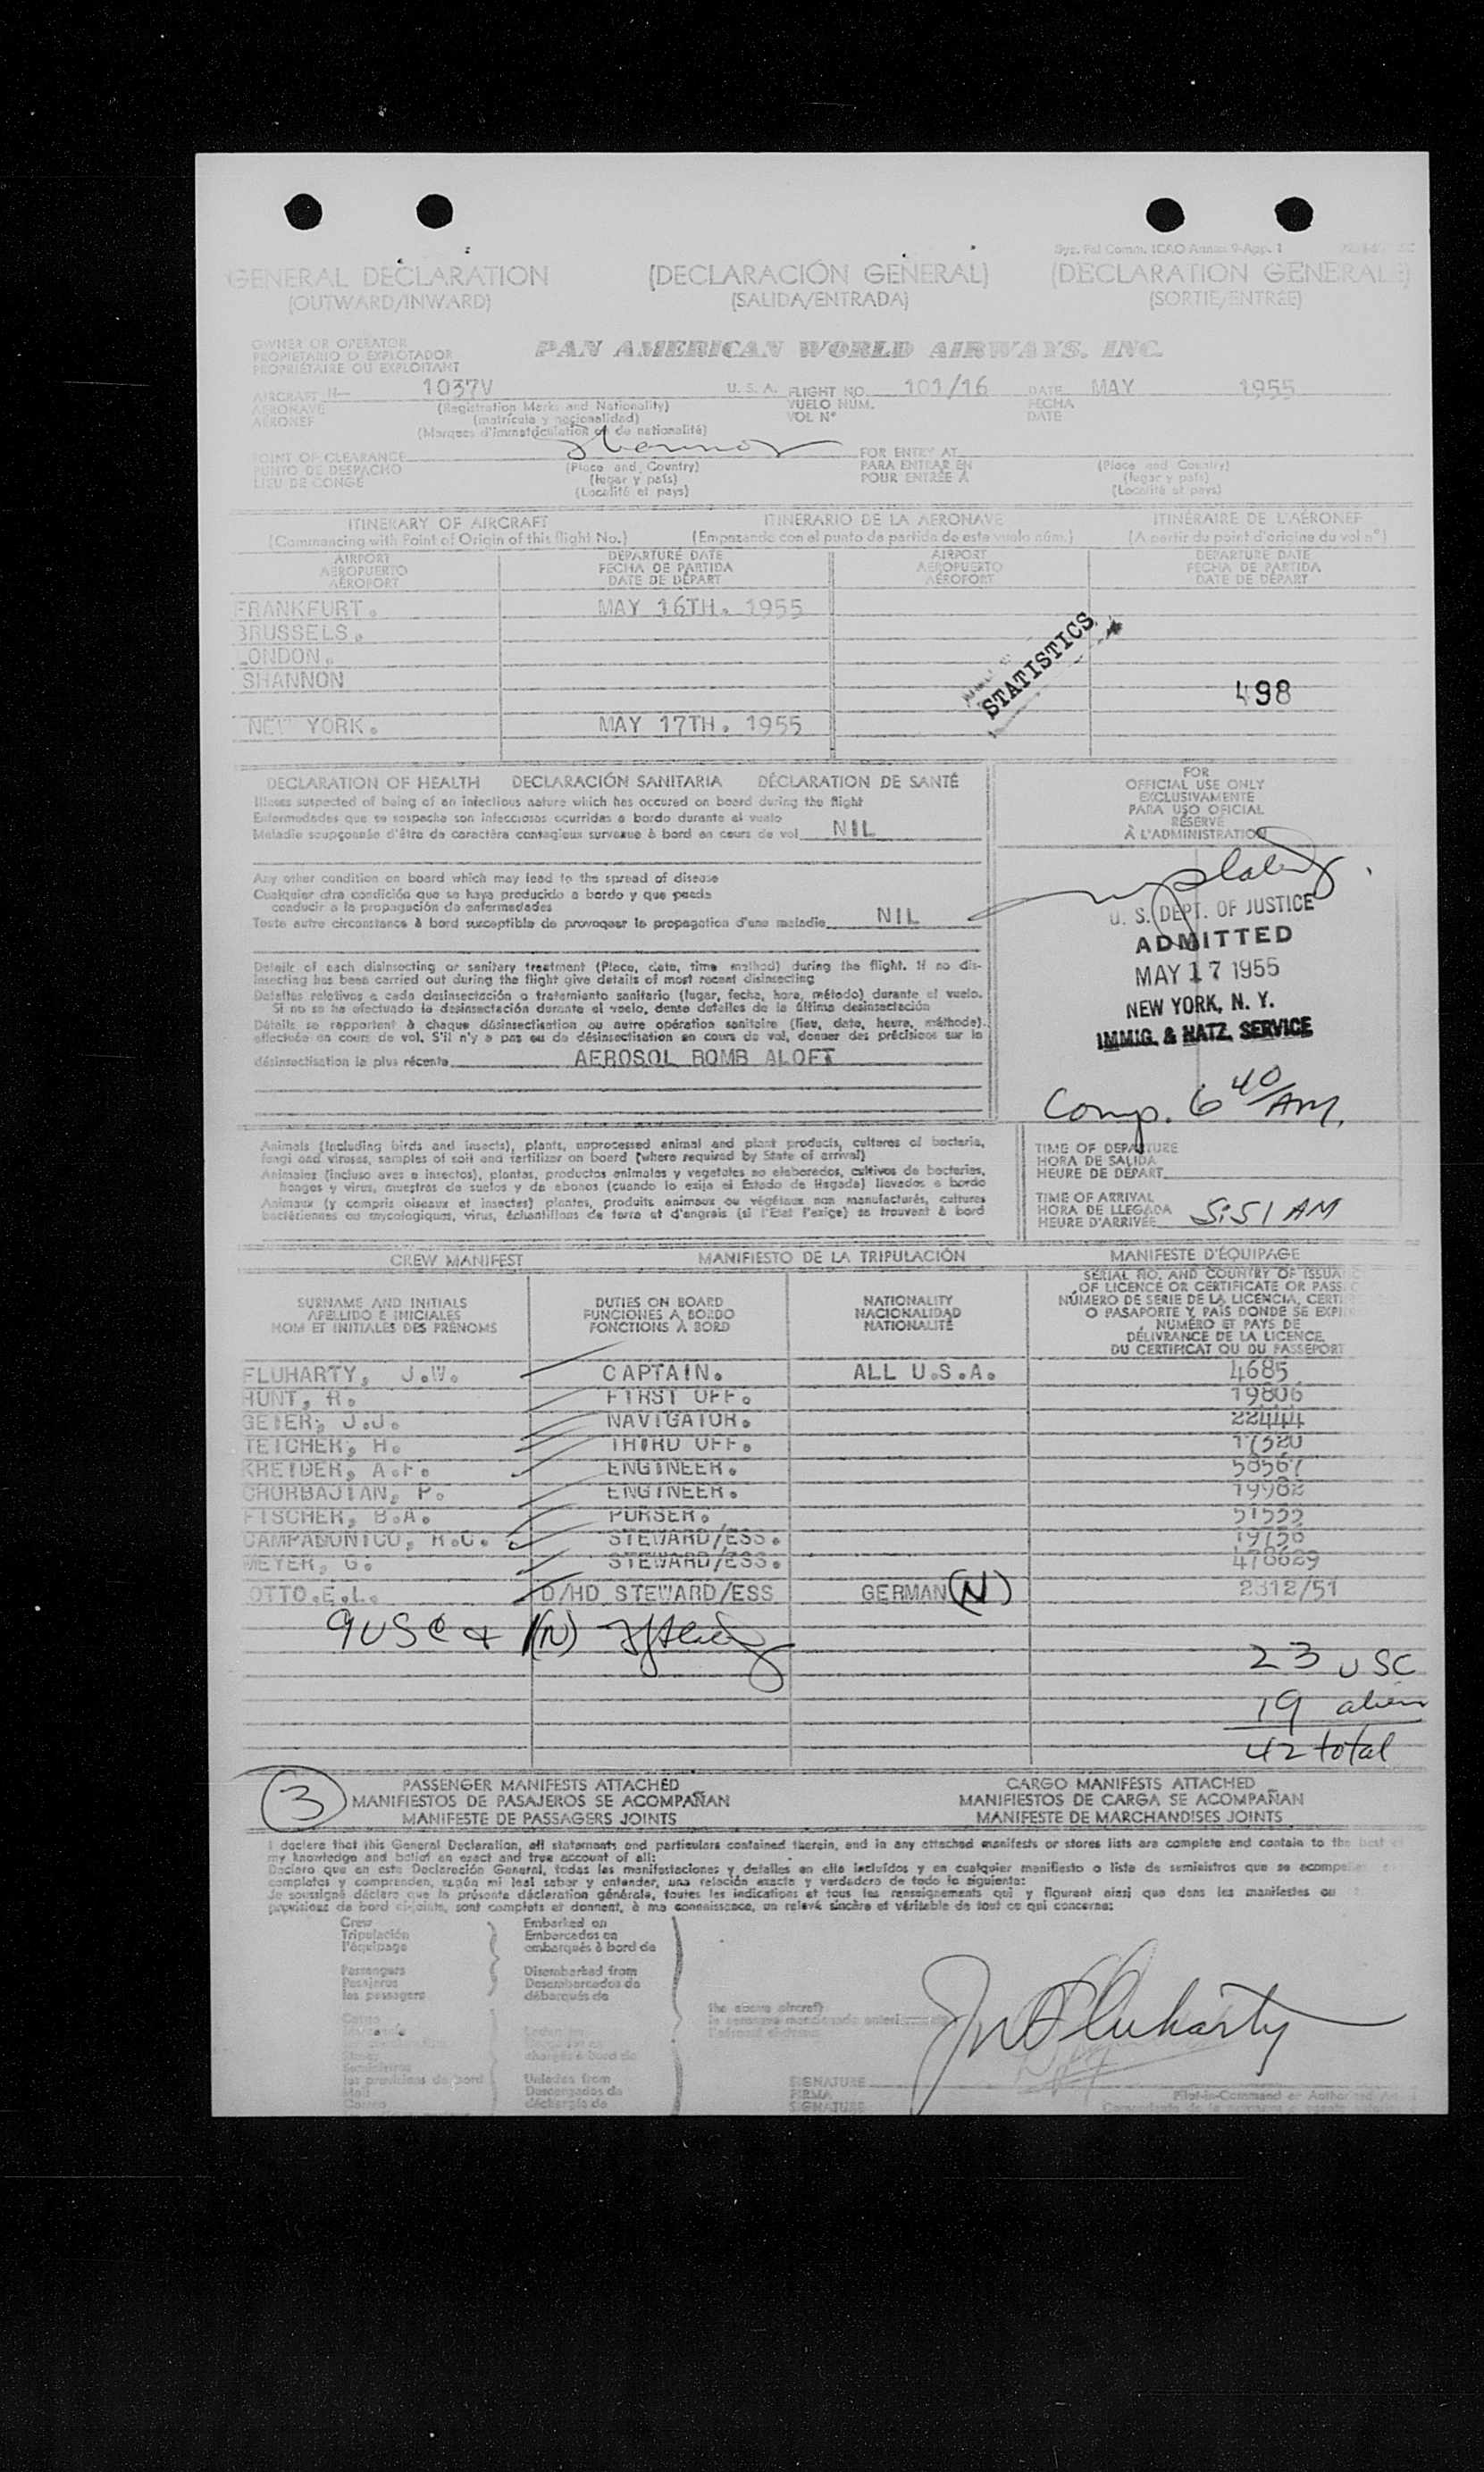 Sys. Fal Comm. ICAO Annex 9-App. 1
GENERAL DECLARATION (DECLARACIÓN GENERAL) (DECLARATION GENERALE)
(OUTWARD/INWARD) (SALIDA/ENTRADA) (SORTIE/ENTRÉE)
OWNER OR OPERATOR
PROPIETARIO O EXPLOTADOR PAN AMERICAN WORLD AIRWAYS, INC.
PROPRIÉTAIRE OU EXPLOITANT
AIRCRAFT N— 1037V U. S. A. FLIGHT NO. 101/16 DATE MAY 1955
AERONAVE (Registration Marks and Nationality) VUELO NÚM. FECHA
AÉRONEF (matrícula y nacionalidad) VOL N° DATE
(Marques d'immatriculation et de nationalité)
POINT OF CLEARANCE Shannon FOR ENTRY AT
PUNTO DE DESPACHO (Place and Country) PARA ENTRAR EN (Place and Country)
LIEU DE CONGÉ (lugar y país) POUR ENTRÉE À (lugar y país)
(Localité et pays) (Localité et pays)
ITINERARY OF AIRCRAFT ITINERARIO DE LA AERONAVE ITINÉRAIRE DE L'AÉRONEF
(Commencing with Point of Origin of this flight No.) (Empezando con el punto de partida de este vuelo núm.) (A partir du point d'origine du vol n°)
AIRPORT DEPARTURE DATE AIRPORT DEPARTURE DATE
AEROPUERTO FECHA DE PARTIDA AEROPUERTO FECHA DE PARTIDA
AÉROPORT DATE DE DÉPART AÉROPORT DATE DE DÉPART
FRANKFURT. MAY 16TH. 1955
BRUSSELS.
LONDON.
SHANNON
STATISTICS
498
NEW YORK. MAY 17TH. 1955
DECLARATION OF HEALTH DECLARACIÓN SANITARIA DÉCLARATION DE SANTÉ
Illness suspected of being of an infectious nature which has occured on board during the flight
Enfermedades que se sospecha son infecciosas ocurridas a bordo durante el vuelo
Maladie soupçonnée d'être de caractère contagieux survenue à bord en cours de vol NIL
Any other condition on board which may lead to the spread of disease
Cualquier otra condición que se haya producido a bordo y que pueda
conducir a la propagación de enfermedades
Toute autre circonstance à bord susceptible de provoquer la propagation d'une maladie NIL
Details of each disinsecting or sanitary treatment (Place, date, time method) during the flight. If no dis-
insecting has been carried out during the flight give details of most recent disinsecting
Detalles relativos a cada desinsectación o tratamiento sanitario (lugar, fecha, hora, método) durante el vuelo.
Si no se ha efectuado la desinsectación durante el vuelo, dense detalles de la última desinsectación
Détails se rapportent à chaque désinsectisation ou autre opération sanitaire (lieu, date, heure, méthode).
effectuée en cours de vol. S'il n'y a pas eu de désinsectisation en cours de vol, donner des précisions sur la
désinsectisation la plus récente AEROSOL BOMB ALOFT
FOR
OFFICIAL USE ONLY
EXCLUSIVAMENTE
PARA USO OFICIAL
RÉSERVÉ
À L'ADMINISTRATION
U. S. DEPT. OF JUSTICE
ADMITTED
MAY 17 1955
NEW YORK, N. Y.
IMMIG. & NATZ. SERVICE
Comp. 6 40/AM.
Animals (Including birds and insects), plants, unprocessed animal and plant products, cultures of bacteria,
fungi and viruses, samples of soil and fertilizer on board (where required by State of arrival)
Animales (incluso aves e insectos), plantas, productos animales y vegetales no elaborados, cultivos de bacterias,
hongos y virus, muestras de suelos y de abonos (cuando lo exija el Estado de llegada) llevados a bordo
Animaux (y compris oiseaux et insectes) plantes, produits animaux ou végétaux non manufacturés, cultures
bactériennes ou mycologiques, virus, échantillons de terre et d'engrais (si l'Etat l'exige) se trouvent à bord
TIME OF DEPARTURE
HORA DE SALIDA
HEURE DE DÉPART
TIME OF ARRIVAL
HORA DE LLEGADA
HEURE D'ARRIVÉE 5:51 AM
CREW MANIFEST MANIFIESTO DE LA TRIPULACIÓN MANIFESTE D'ÉQUIPAGE
SURNAME AND INITIALS DUTIES ON BOARD NATIONALITY
APELLIDO E INICIALES FUNCIONES A BORDO NACIONALIDAD
NOM ET INITIALES DES PRÉNOMS FONCTIONS À BORD NATIONALITÉ
SERIAL NO. AND COUNTRY OF ISSUA
OF LICENCE OR CERTIFICATE OR PASS
NÚMERO DE SERIE DE LA LICENCIA, CERTI
O PASAPORTE Y PAÍS DONDE SE EXPI
NUMÉRO ET PAYS DE
DÉLIVRANCE DE LA LICENCE,
DU CERTIFICAT OU DU PASSEPORT
FLUHARTY, J.W. CAPTAIN. ALL U.S.A. 4685
HUNT, R. FIRST OFF. 19806
GEIER, J.J. NAVIGATOR. 22444
TEICHER, H. THIRD OFF. 17320
KREIDER, A.F. ENGINEER. 58567
CHORBAJIAN, P. ENGINEER. 19982
FISCHER, B.A. PURSER.
CAMPADONICO, R.C. STEWARD/ESS. 19756
MEYER, G. STEWARD/ESS. 478629
OTTO.E.L. D/HD STEWARD/ESS GERMAN (N) 2312/51
9 USC + 1(N)
23 USC
19 alien
42 total
(3) PASSENGER MANIFESTS ATTACHED CARGO MANIFESTS ATTACHED
MANIFIESTOS DE PASAJEROS SE ACOMPAÑAN MANIFIESTOS DE CARGA SE ACOMPAÑAN
MANIFESTE DE PASSAGERS JOINTS MANIFESTE DE MARCHANDISES JOINTS
I declare that this General Declaration, all statements and particulars contained therein, and in any attached manifests or stores lists are complete and contain to the best of
my knowledge and belief an exact and true account of all:
Declaro que en esta Declaración General, todas las manifestaciones y detalles en ella incluídos y en cualquier manifiesto o lista de suministros que se acompañe
completos y comprenden, según mi leal saber y entender, una relación exacta y verdadera de todo lo siguiente:
Je soussigné déclare que la présente déclaration générale, toutes les indications et tous les renseignements qui y figurent ainsi que dans les manifestes ou
provisions de bord ci-joints, sont complets et donnent, à ma connaissance, un relevé sincère et véritable de tout ce qui concerne:
Crew Embarked on
Tripulación Embarcados en
l'équipage embarqués à bord de
Passengers Disembarked from
Pasajeros Desembarcados de
les passagers débarqués de
the above aircraft
Cargo
chargés à bord de
les provisions de bord Unladen from
Mail Descargados de
Correo déchargés de
JW Fluharty
SIGNATURE
FIRMA Pilot-in-Command or Authorized
SIGNATURE